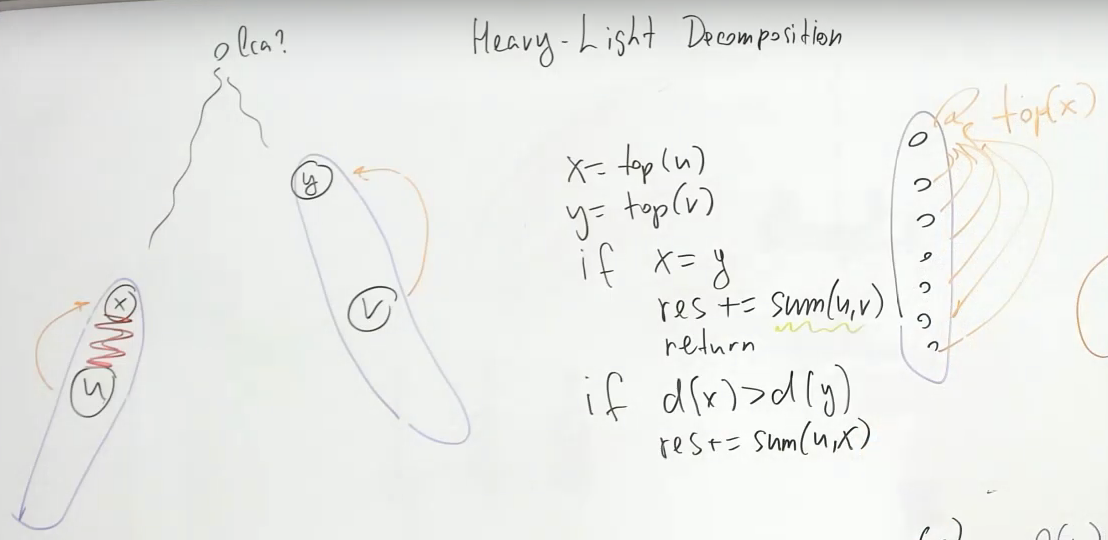 lca?
Heavy-Light Decomposition
top(x)
x= top(u)
y= top(v)
if x=y
res += sum(u,v)
return
if d(x)>d(y)
res+= sum(u,x)
y
v
x
u